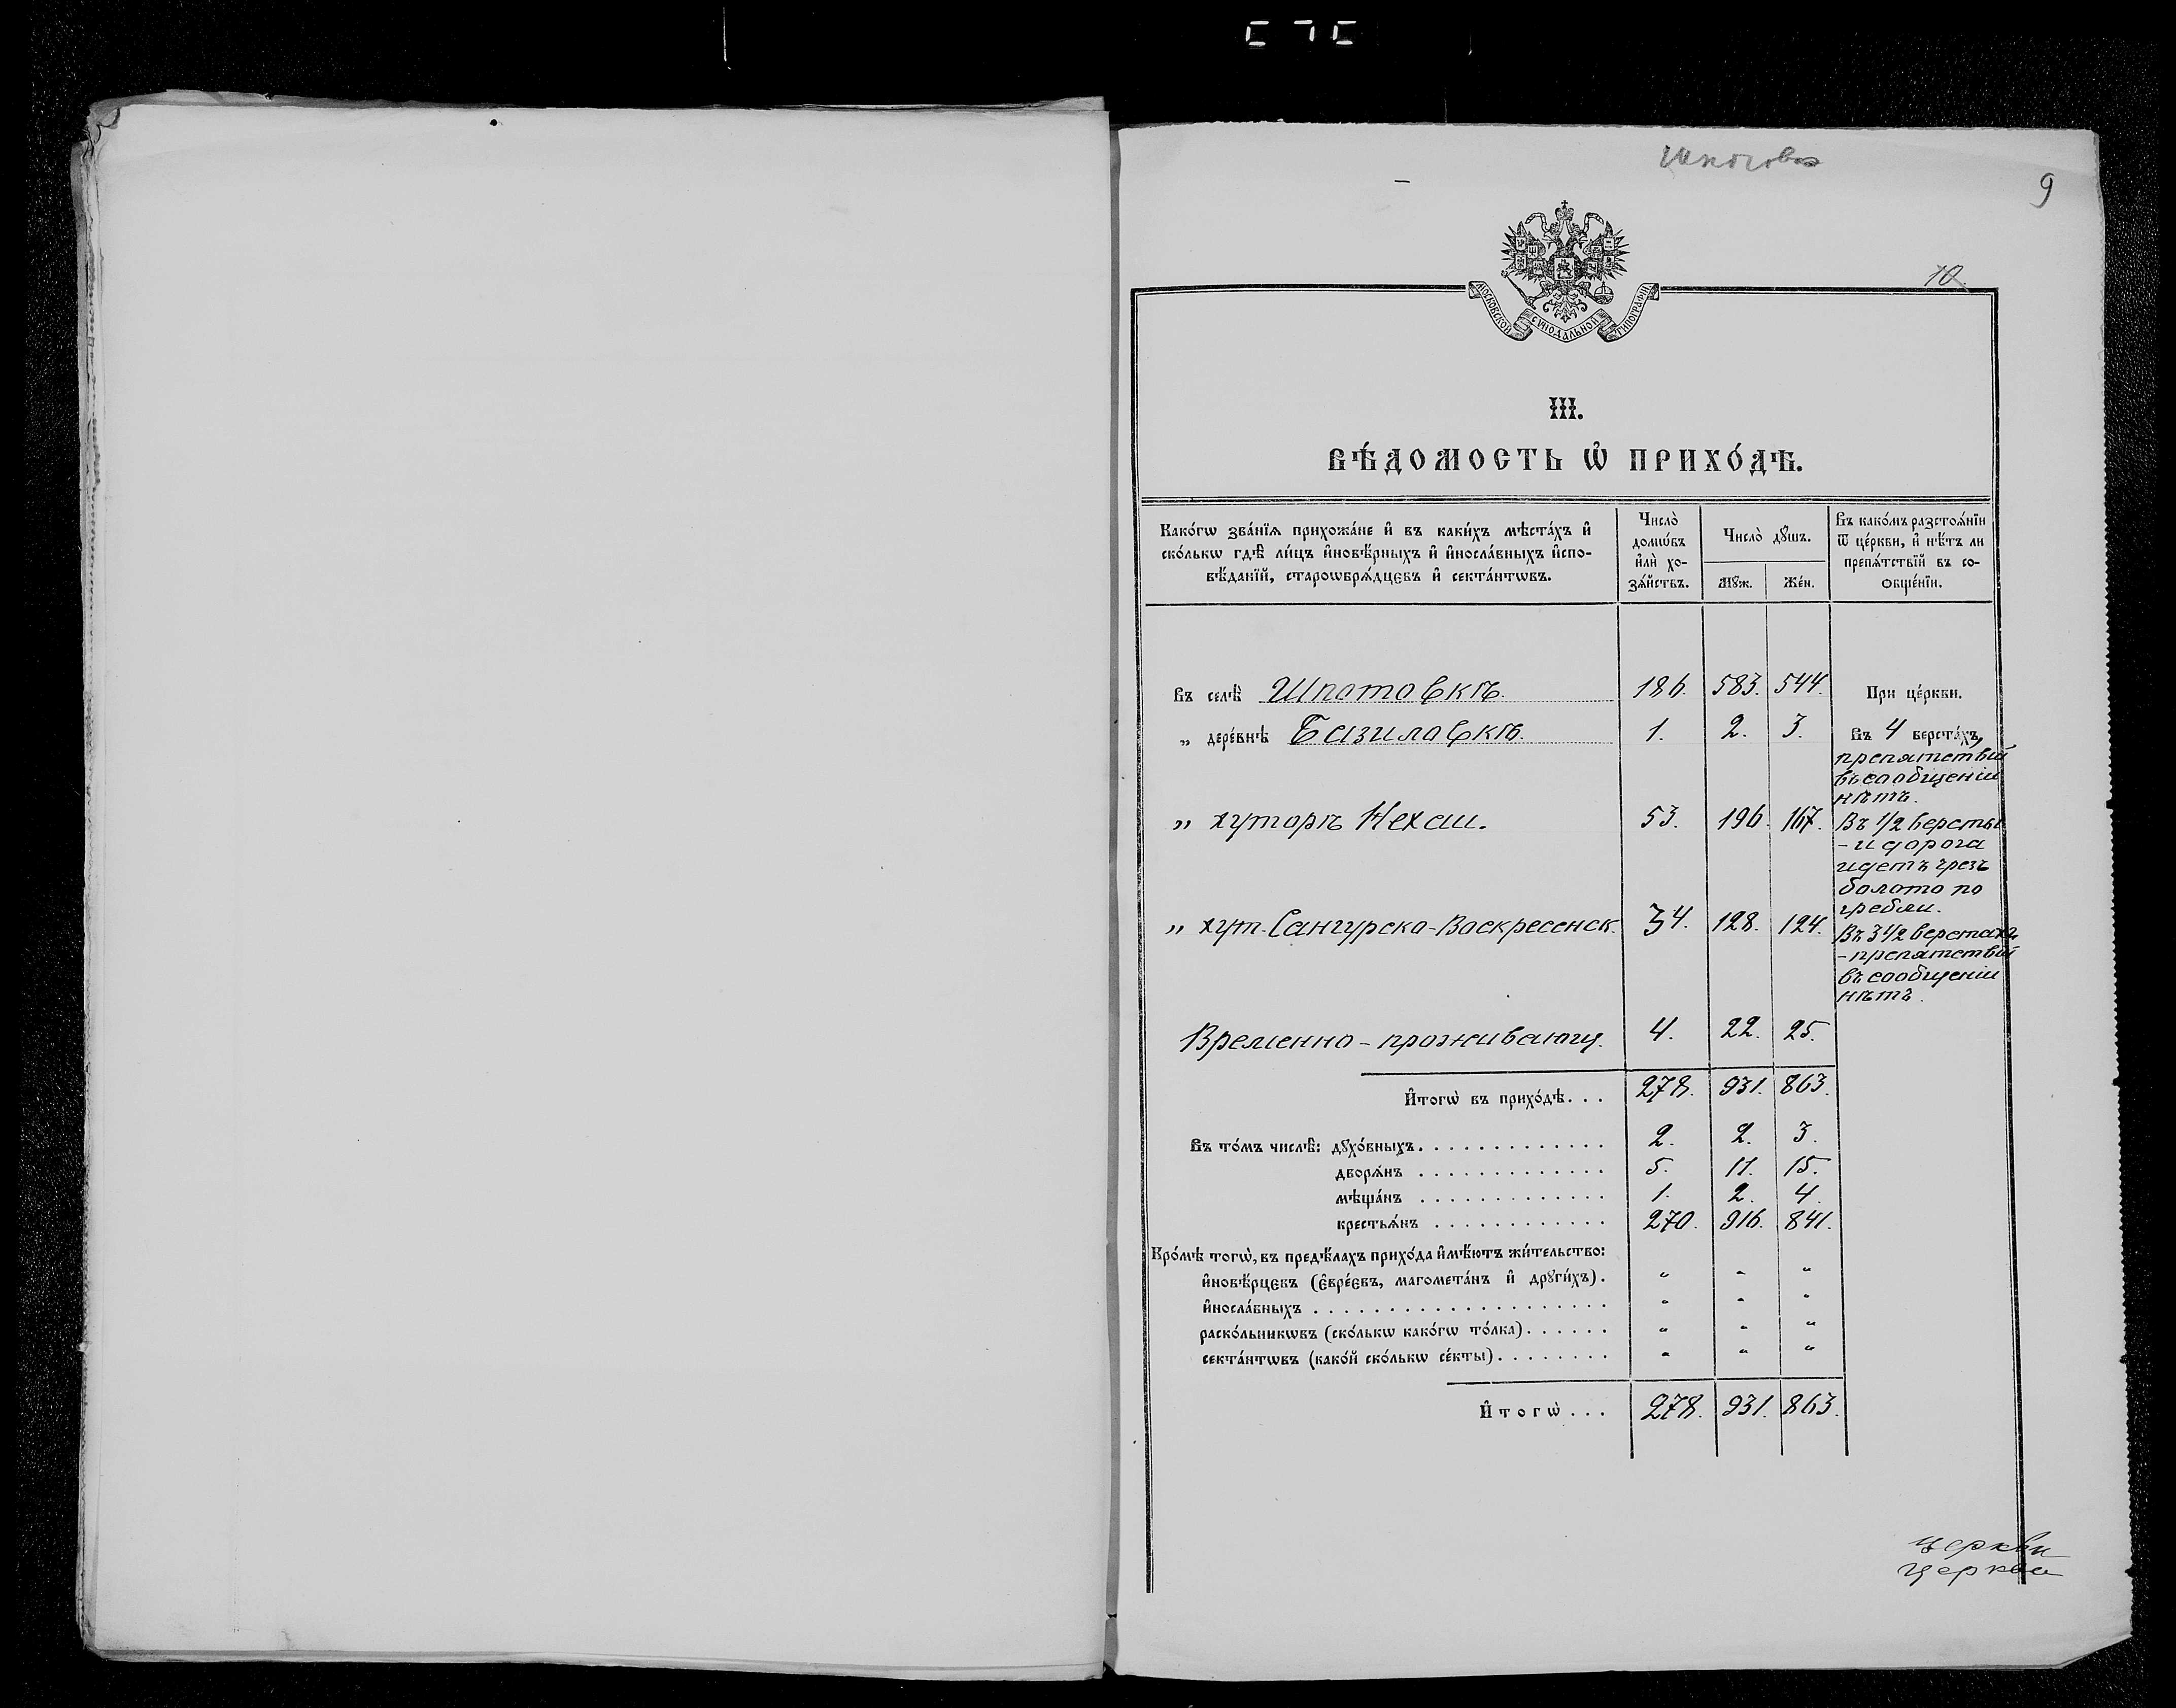 9
10.
МОСКОВСКОЙ СѴНОДАЛЬНОЙ ТИПОГРАФІИ
III.
ВѢ́ДОМОСТЬ Ѽ ПРИХО́ДѢ.
Како́гѡ зва́нїѧ прихожа́не и҆ въ каки́хъ мѣста́хъ и҆
ско́лькѡ гдѣ̀ ли́цъ и҆новѣ́рныхъ и҆ и҆носла́вныхъ и҆спо-
вѣ́данїй, староѡбрѧ́дцєвъ и҆ секта́нтѡвъ.
Число̀
домѡ́въ
и҆лѝ хо-
зѧ́йствъ.
Число̀ дꙋ́шъ.
Мꙋ́ж.
Же́н.
Въ како́мъ разстоѧ́нїи
ѿ це́ркви, и҆ нѣ́тъ ли
препѧ́тствїй въ со-
ѻбще́нїи.
Въ селѣ̀ Шпотовкѣ. 186. 583. 544. При це́ркви.
„ дере́внѣ Базиловкѣ. 1. 2. 3. Въ 4 верста́хъ,
препятствій
въ сообщеніи
нѣтъ.
„ хуторѣ Нехаи. 53. 196. 167. Въ 1/2 версты
- и дорога
идетъ чрезъ
болото по
гребли.
„ хут. Сангурско-Воскресенск. 34. 128. 124. Въ 3 1/2 верстахъ
- препятствій
въ сообщеніи
нѣтъ.
Временно - проживающ. 4. 22. 25.
И҆тогѡ̀ въ прихо́дѣ. . . 278. 931. 863.
Въ то́мъ числѣ̀: дꙋхо́вныхъ. . . . . . . . . . . . . 2. 2. 3.
дворѧ́нъ . . . . . . . . . . . . . 5. 11. 15.
мѣща́нъ . . . . . . . . . . . . . 1. 2. 4.
крестьѧ́нъ . . . . . . . . . . . . 270. 916. 841.
Кро́мѣ тогѡ̀, въ предѣ́лахъ прихо́да и҆мѣ́ютъ жи́тельство:
и҆новѣ́рцєвъ (є҆вре́євъ, магомета́нъ и҆ дрꙋги́хъ). „ „ „
и҆носла́вныхъ . . . . . . . . . . . . . . . . . . . . „ „ „
раско́льникѡвъ (ско́лькѡ како́гѡ то́лка). . . . . . „ „ „
секта́нтѡвъ (како́й ско́лькѡ се́кты). . . . . . . . „ „ „
И҆тогѡ̀ . . . 278. 931. 863.
церкви
церкви